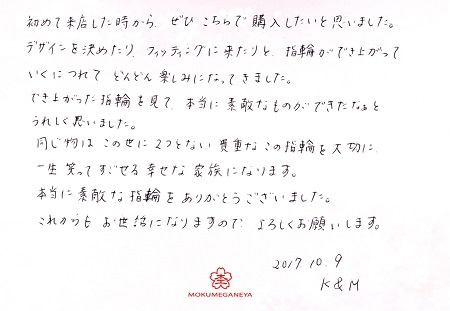 初めて来店した時から、ぜひこちらで購入したいと思いました。
デザインを決めたり、フィッティングに来たりと、指輪ができ上がって
いくにつれて どんどん楽しみになってきました。
でき上がった指輪を見て、本当に素敵なものができたなぁと
うれしく思いました。
同じ物は この世に2つとない 貴重な この指輪を大切に、
一生笑ってすごせる幸せな家族になります。
本当に素敵な指輪をありがとうございました。
これからも お世話になりますので よろしくお願いします。
2017.10.9
K&M
MOKUMEGANEYA